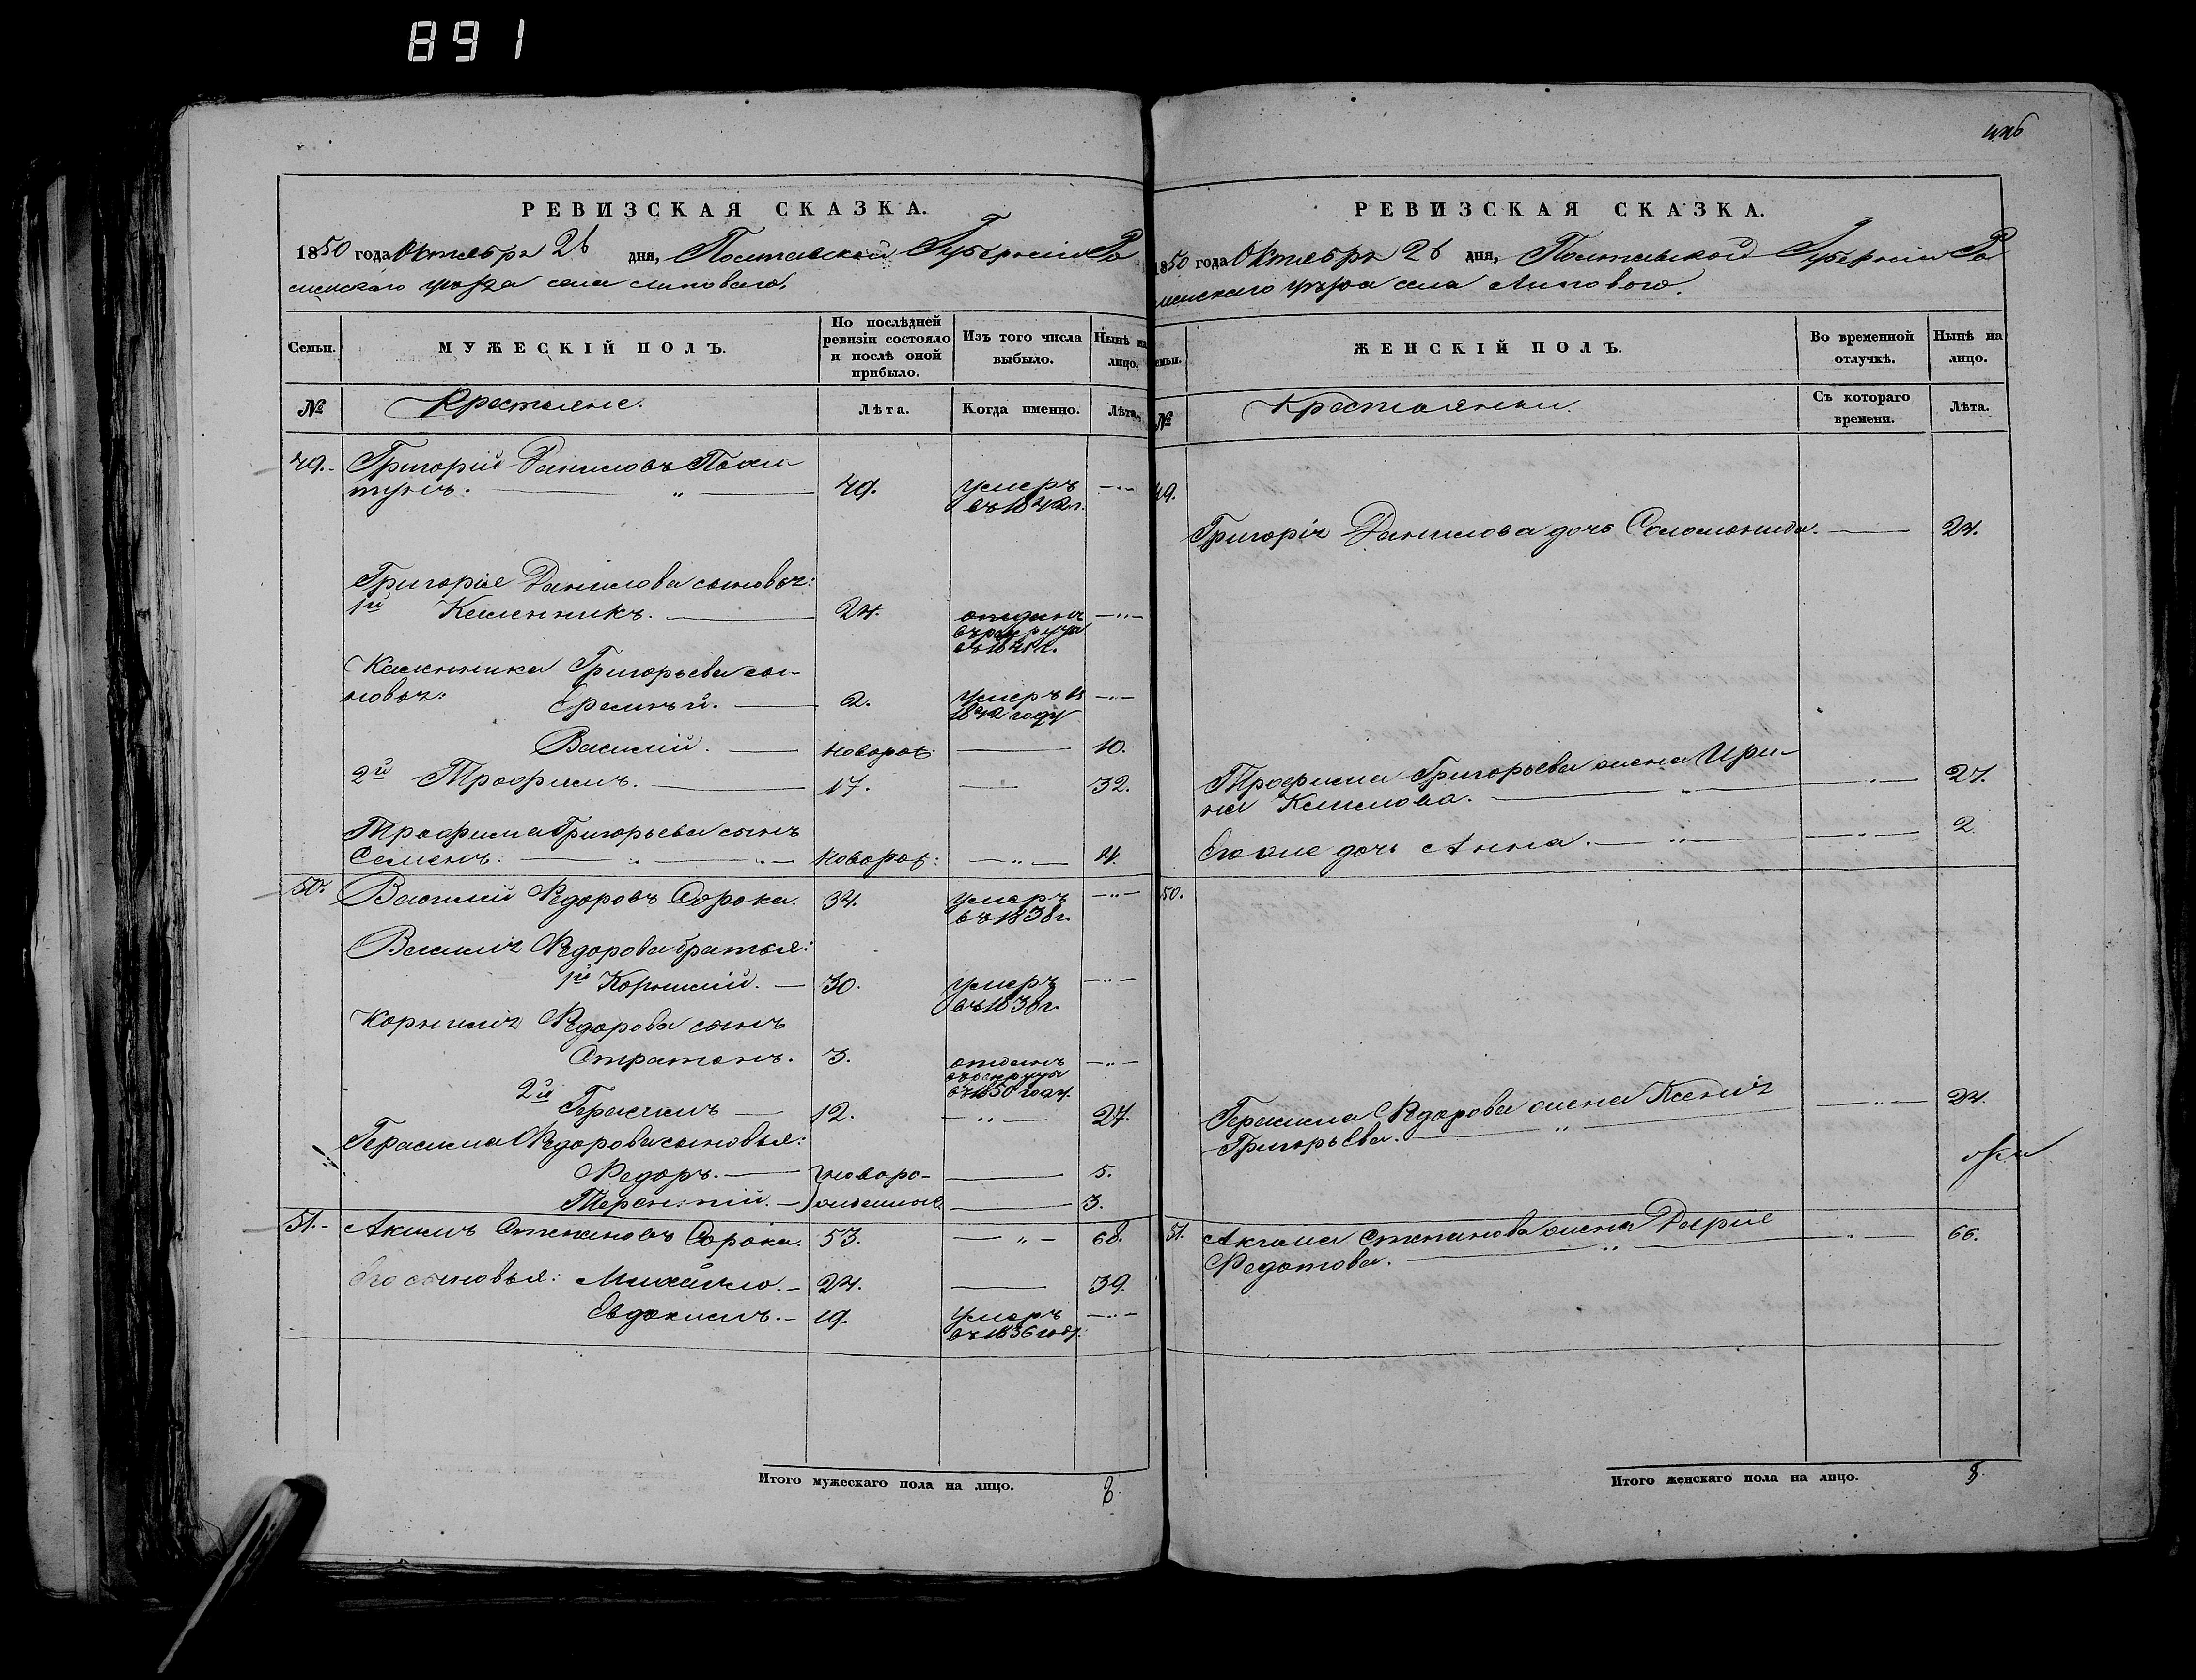 891
РЕВИЗСКАЯ СКАЗКА.
1850 года Октября 26 дня, Полтавской Губерніи Ро
менскаго уѣзда села Липоваго.
Семьи.
МУЖЕСКІЙ ПОЛЪ.
По послѣдней ревизіи состояло и послѣ оной прибыло.
Изъ того числа выбыло.
Нынѣ на лицо.
№
Крестьяне.
Лѣта.
Когда именно.
Лѣта.
49. Григорій Даниловъ
49. умеръ
въ 1842 г.
Григорія Данилова сыновья:
1й Калинникъ. 24. отданъ
въ рекруты
Калинника Григорьева сы-
новья: Еремѣй. 2. умеръ в
1842 году
Василій. новорож: 10.
2й Трофимъ. 17. 32.
Трофима Григорьева сынъ
Семенъ. новорож: 4.
50. Василій Ѳедоровъ Сорока. 34. умеръ
въ 1838 г.
Василія Ѳедорова братья:
1й Корнилій. 30. умеръ
въ 1838 г.
Корнилія Ѳедорова сынъ
Стратонъ. 3. отданъ
въ рекруты
въ 1850 году.
2й Герасимъ 12. 27.
Герасима Ѳедорова сыновья:
Ѳедоръ. новоро- 5.
Терентій. жденные 3.
51. Акимъ Степановъ Сорока. 53. 68.
Его сыновья: Михайло. 24. 39.
Евдокимъ. 19. умеръ
въ 1836 году.
Итого мужескаго пола на лицо. 8.
РЕВИЗСКАЯ СКАЗКА.
1850 года Октября 26 дня, Полтавской Губерніи Ро
менскаго уѣзда села Липоваго.
Семьи.
ЖЕНСКІЙ ПОЛЪ.
Во временной отлучкѣ.
Нынѣ на лицо.
№
Крестьянки.
Съ котораго времени.
Лѣта.
49.
Григорія Данилова дочь Соломонида. 24.
Трофима Григорьева жена Ири-
на 27.
Его же дочь Анна. 2.
50.
Герасима Ѳедорова жена Ксенія
Григорьева. 24.
51. Акима Степанова жена Дарія
Ѳедотова. 66.
Итого женскаго пола на лицо. 5.